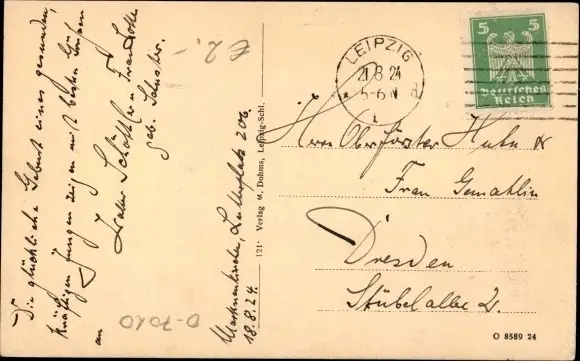 Die glückliche Geburt eines gesunden,
kräftigen Jungen zeigen mit besten Grüßen
an
u. Frau Lotte
geb.
Lutherplatz 206.
18.8.24.
121 Verlag M. Dohms, Leipzig-Schl.
D-7010
€ 2.-
LEIPZIG
21 8 24
5-6 N
1
5 5
Deutsches
Reich
Herrn Oberförster Huhn &
Frau Gemahlin
Dresden
Stübelallee 2.
O 8589 24